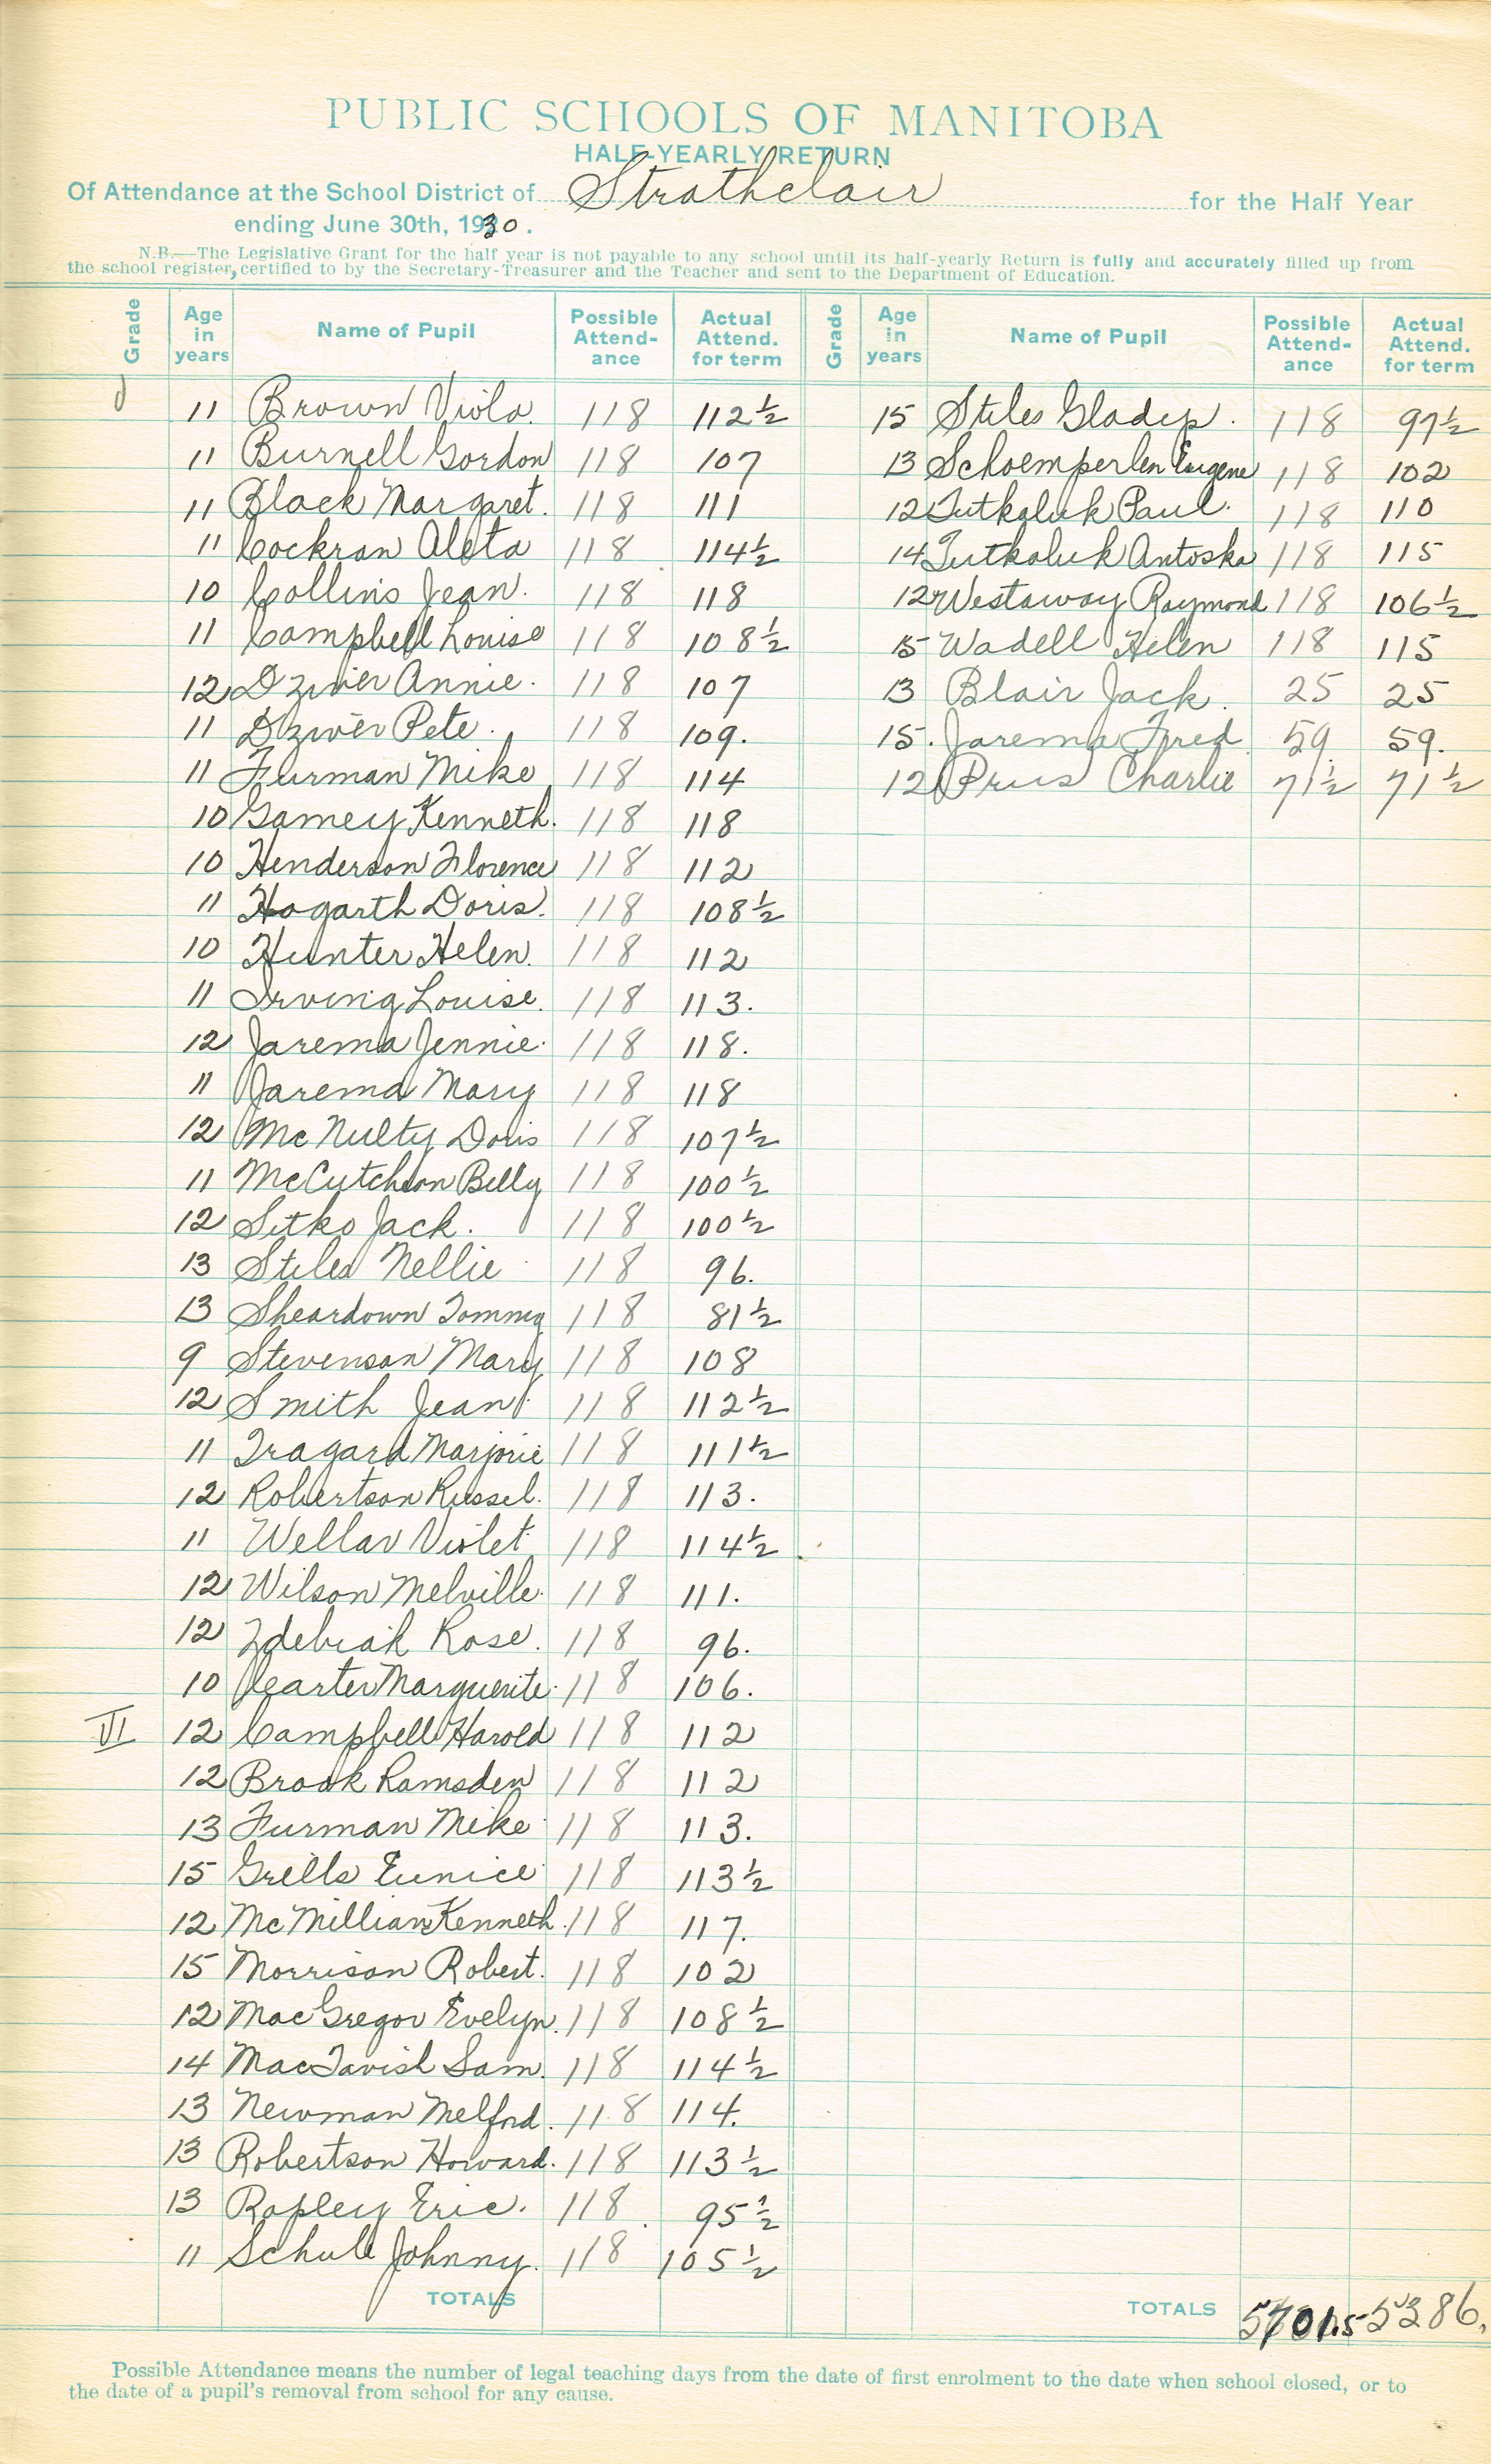 PUBLIC SCHOOLS OF MANITOBA
HALF-YEARLY RETURN
Of Attendance at the School District of Strathclair for the Half Year
ending June 30th, 1930.
N.B.—The Legislative Grant for the half year is not payable to any school until its half-yearly Return is fully and accurately filled up from
the school register, certified to by the Secretary-Treasurer and the Teacher and sent to the Department of Education.
Grade Age in years Name of Pupil Possible Attend-ance Actual Attend. for term Grade Age in years Name of Pupil Possible Attend-ance Actual Attend. for term
11 Brown Viola. 118 112½
11 Burnell Gordon 118 107
11 Black Margaret. 118 111
11 Cockran Aleta 118 114½
10 Collins Jean. 118 118
11 Campbell Louise 118 108½
12 Dziver Annie. 118 107
11 Dziver Pete. 118 109.
11 Furman Mike 118 114
10 Gamey Kenneth. 118 118
10 Henderson Florence 118 112
11 Hogarth Doris. 118 108½
10 Hunter Helen. 118 112
11 Irving Louise. 118 113.
12 Jarema Jennie. 118 118.
11 Jarema Mary 118 118
12 McNulty Doris 118 107½
11 McCutcheon Billy 118 100½
12 Sitko Jack. 118 100½
13 Stiles Nellie 118 96.
13 Sheardown Tommy 118 81½
9 Stevenson Mary 118 108
12 Smith Jean 118 112½
11 Tragard Marjorie 118 111½
12 Robertson Russel. 118 113.
11 Wellar Violet 118 114½
12 Wilson Melville. 118 111.
12 Zdebiak Rose. 118 96.
10 Marguerite. 118 106.
VI 12 Campbell Harold 118 112
12 Brook Ramsden 118 112
13 Furman Mike 118 113.
15 Grills Eunice 118 113½
12 McMillian Kenneth. 118 117.
15 Morrison Robert. 118 102
12 MacGregor Evelyn. 118 108½
14 MacTavish Sam. 118 114½
13 Newman Melford. 118 114.
13 Robertson Howard. 118 113½
13 Rapley Eric. 118 95½
11 Schull Johnny. 118 105½
TOTALS
15 Stiles Gladys. 118 97½
13 Schoemperlen Eugene 118 102
12 Tutkaluk Paul. 118 110
14 Tutkaluk Antoska 118 115
12 Westaway Raymond 118 106½
15 Wadell Helen 118 115
13 Blair Jack. 25 25
15. Jarema Fred 59 59.
12 Prus Charlie 71½ 71½
TOTALS 5701.5 5286.
Possible Attendance means the number of legal teaching days from the date of first enrolment to the date when school closed, or to
the date of a pupil's removal from school for any cause.